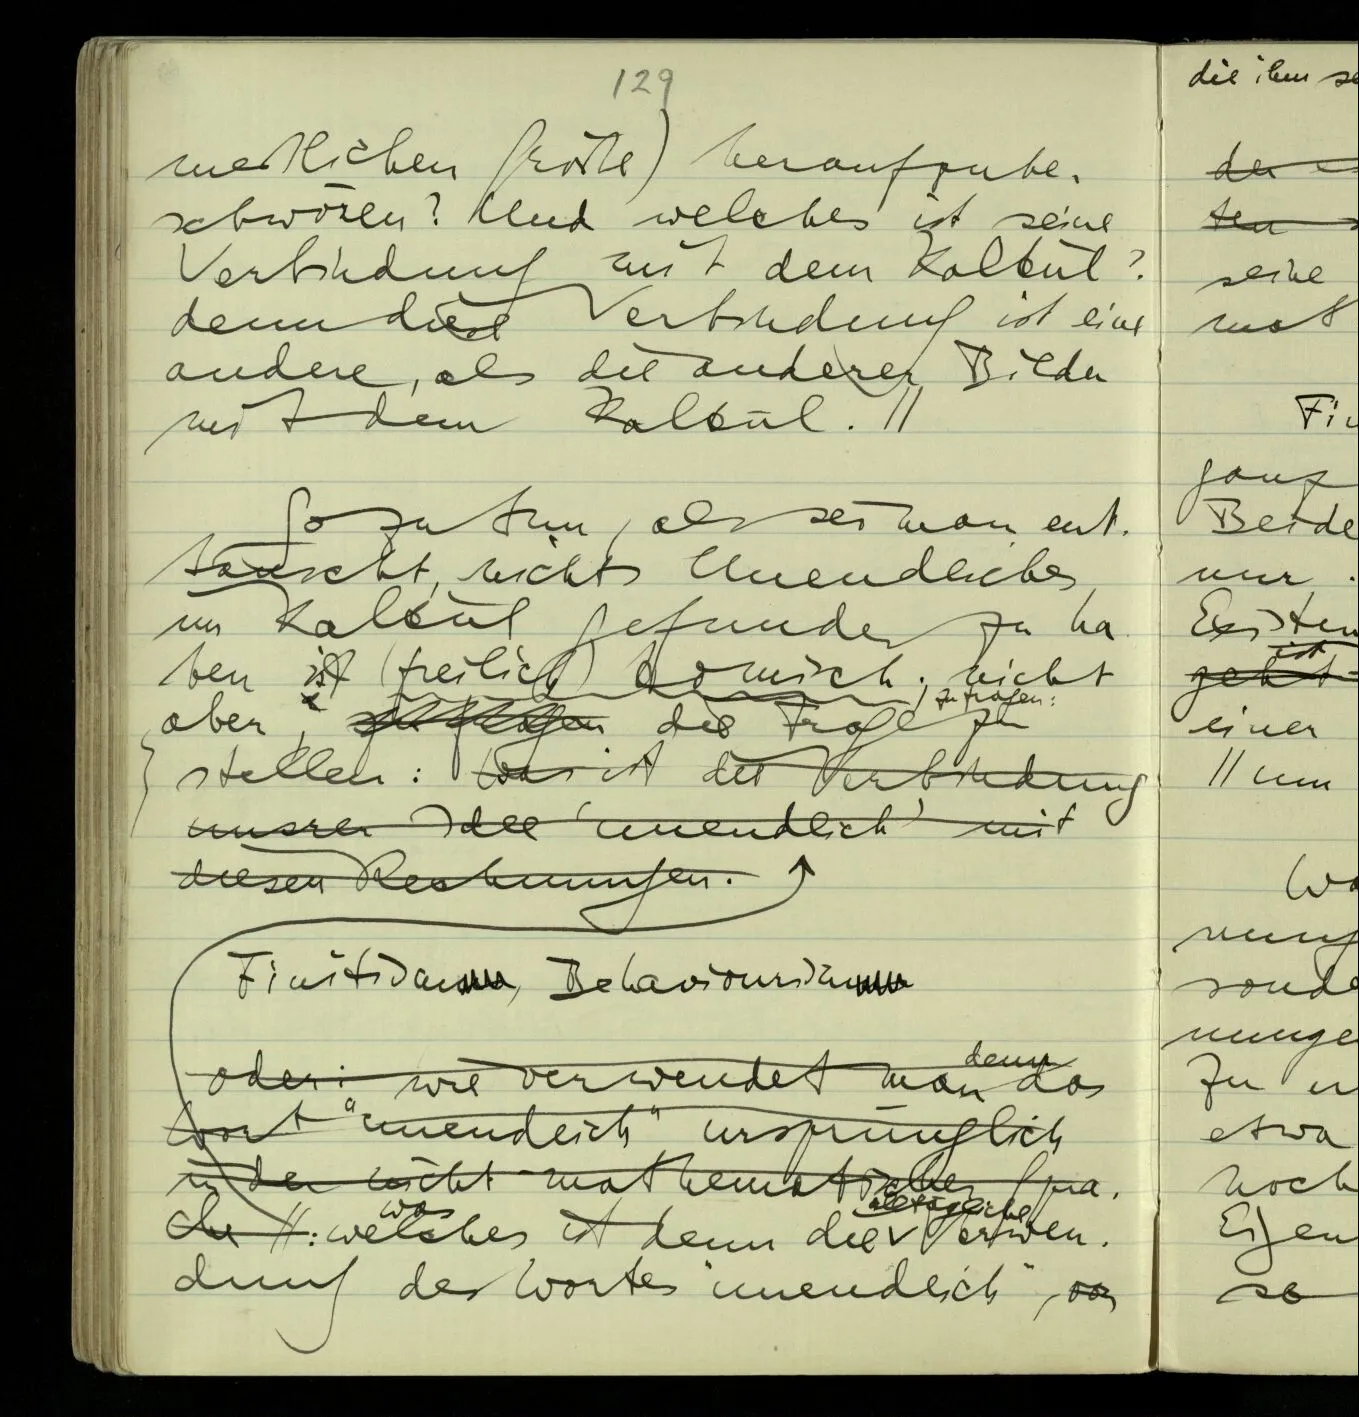 129
merklichen Größe) heraufzube-
schwören? Und welches ist seine
Verbindung mit dem Kalkül?
denn diese Verbindung ist eine
andere, als die anderer Bilder
mit dem Kalkül. //
So zu tun, als sei man ent-
täuscht, nichts Unendliches
im Kalkül gefunden zu ha-
ben ist (freilich) komisch; nicht
zu fragen:
aber, zu fragen die Frage zu
stellen: Was ist die Verbindung
unsrer Idee 'unendlich' mit
diesen Rechnungen.
Finitismus, Behaviourismus
denn
oder: wie verwendet man das
Wort "unendlich" ursprünglich
in der nicht mathematischen Spra-
was alltägliche
che //: welches ist denn die Verwen-
dung des Wortes "unendlich",
die ihm
der
ten
seine
mat
Fin
ganz
Beide
nur
Existen
ist
geht
einer
// um
Wa
nung
sonde
nunge
Zu
etwa
noch
Eigen
so